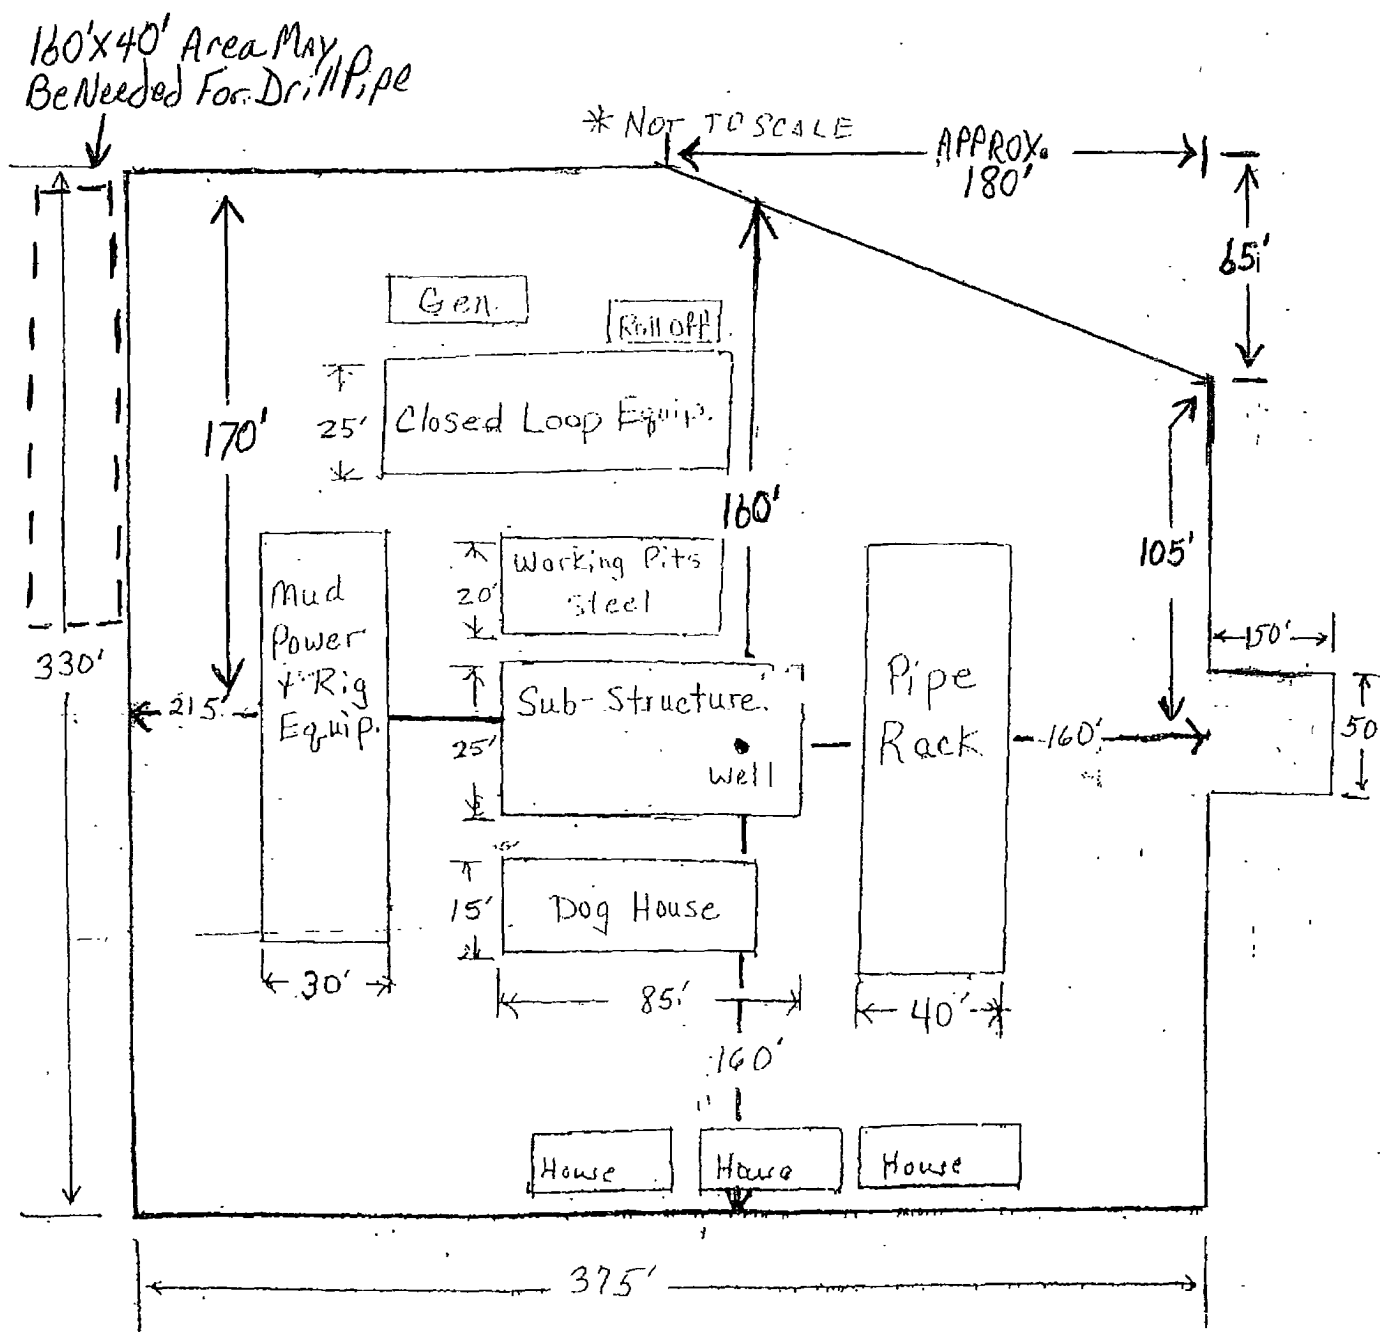 160'X40' Area May
Be Needed For Drill Pipe
* NOT TO SCALE
APPROX.
180'
65'
Gen.
Roll off
25'
Closed Loop Equip.
170'
160'
105'
Mud
Power
+ Rig
Equip.
20'
Working Pits
Steel
330'
215'
25'
Sub-Structure.
Well
Pipe
Rack
160'
150'
50
15'
Dog House
30'
85'
40'
160'
House
House
House
375'